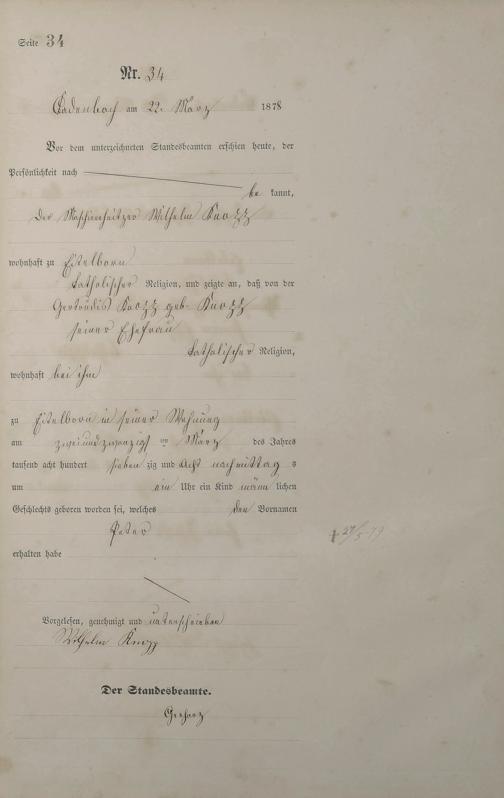 Seite 34
Nr. 34
Cadenbach am 22. März 1878
Vor dem unterzeichneten Standesbeamten erschien heute, der
Persönlichkeit nach
be kannt,
der Maschienheitzer Wilhelm Knopp
wohnhaft zu Eitelborn
katholischer Religion, und zeigte an, daß von der
Gertrudis Knopp geb. Knopp
seiner Ehefrau
katholischer Religion,
wohnhaft bei ihm
zu Eitelborn in seiner Wohnung
am zweiundzwanzigst en März des Jahres
tausend acht hundert sieben zig und Acht nachmittag s
um ein Uhr ein Kind männ lichen
Geschlechts geboren worden sei, welches den Vornamen
Peter
erhalten habe
Vorgelesen, genehmigt und unterschrieben
Wilhelm Knopp
Der Standesbeamte.
Gerharz